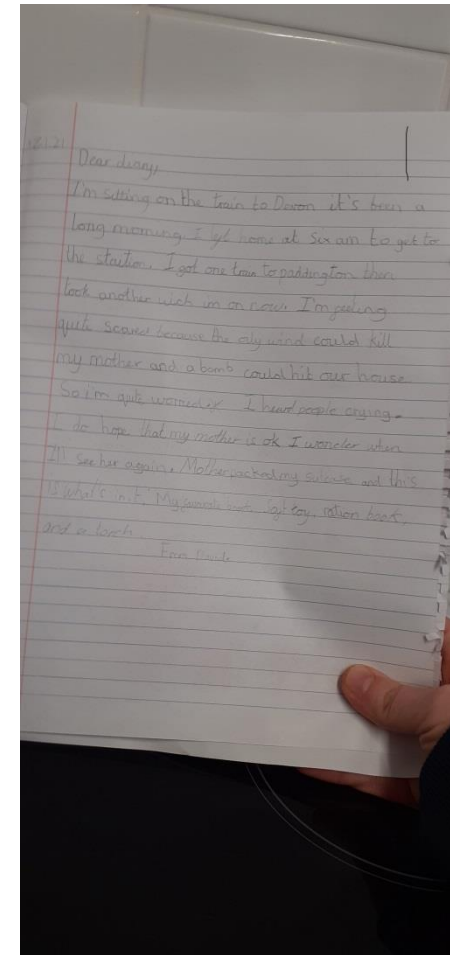 18.1.21
Dear diary,
I'm sitting on the train to Devon it's been a
long morning. I left home at six am to get to
the staition. I got one train to paddington then
took another wich im on now. I'm feeling
quite scared because the wind could kill
my mother and a bomb could hit our house
So i'm quite worried. I heard people crying.
I do hope that my mother is ok I wonder when
I'll see her again. Mother packed my and this
is what's in it. My book, toy, ration book,
and a torch
From